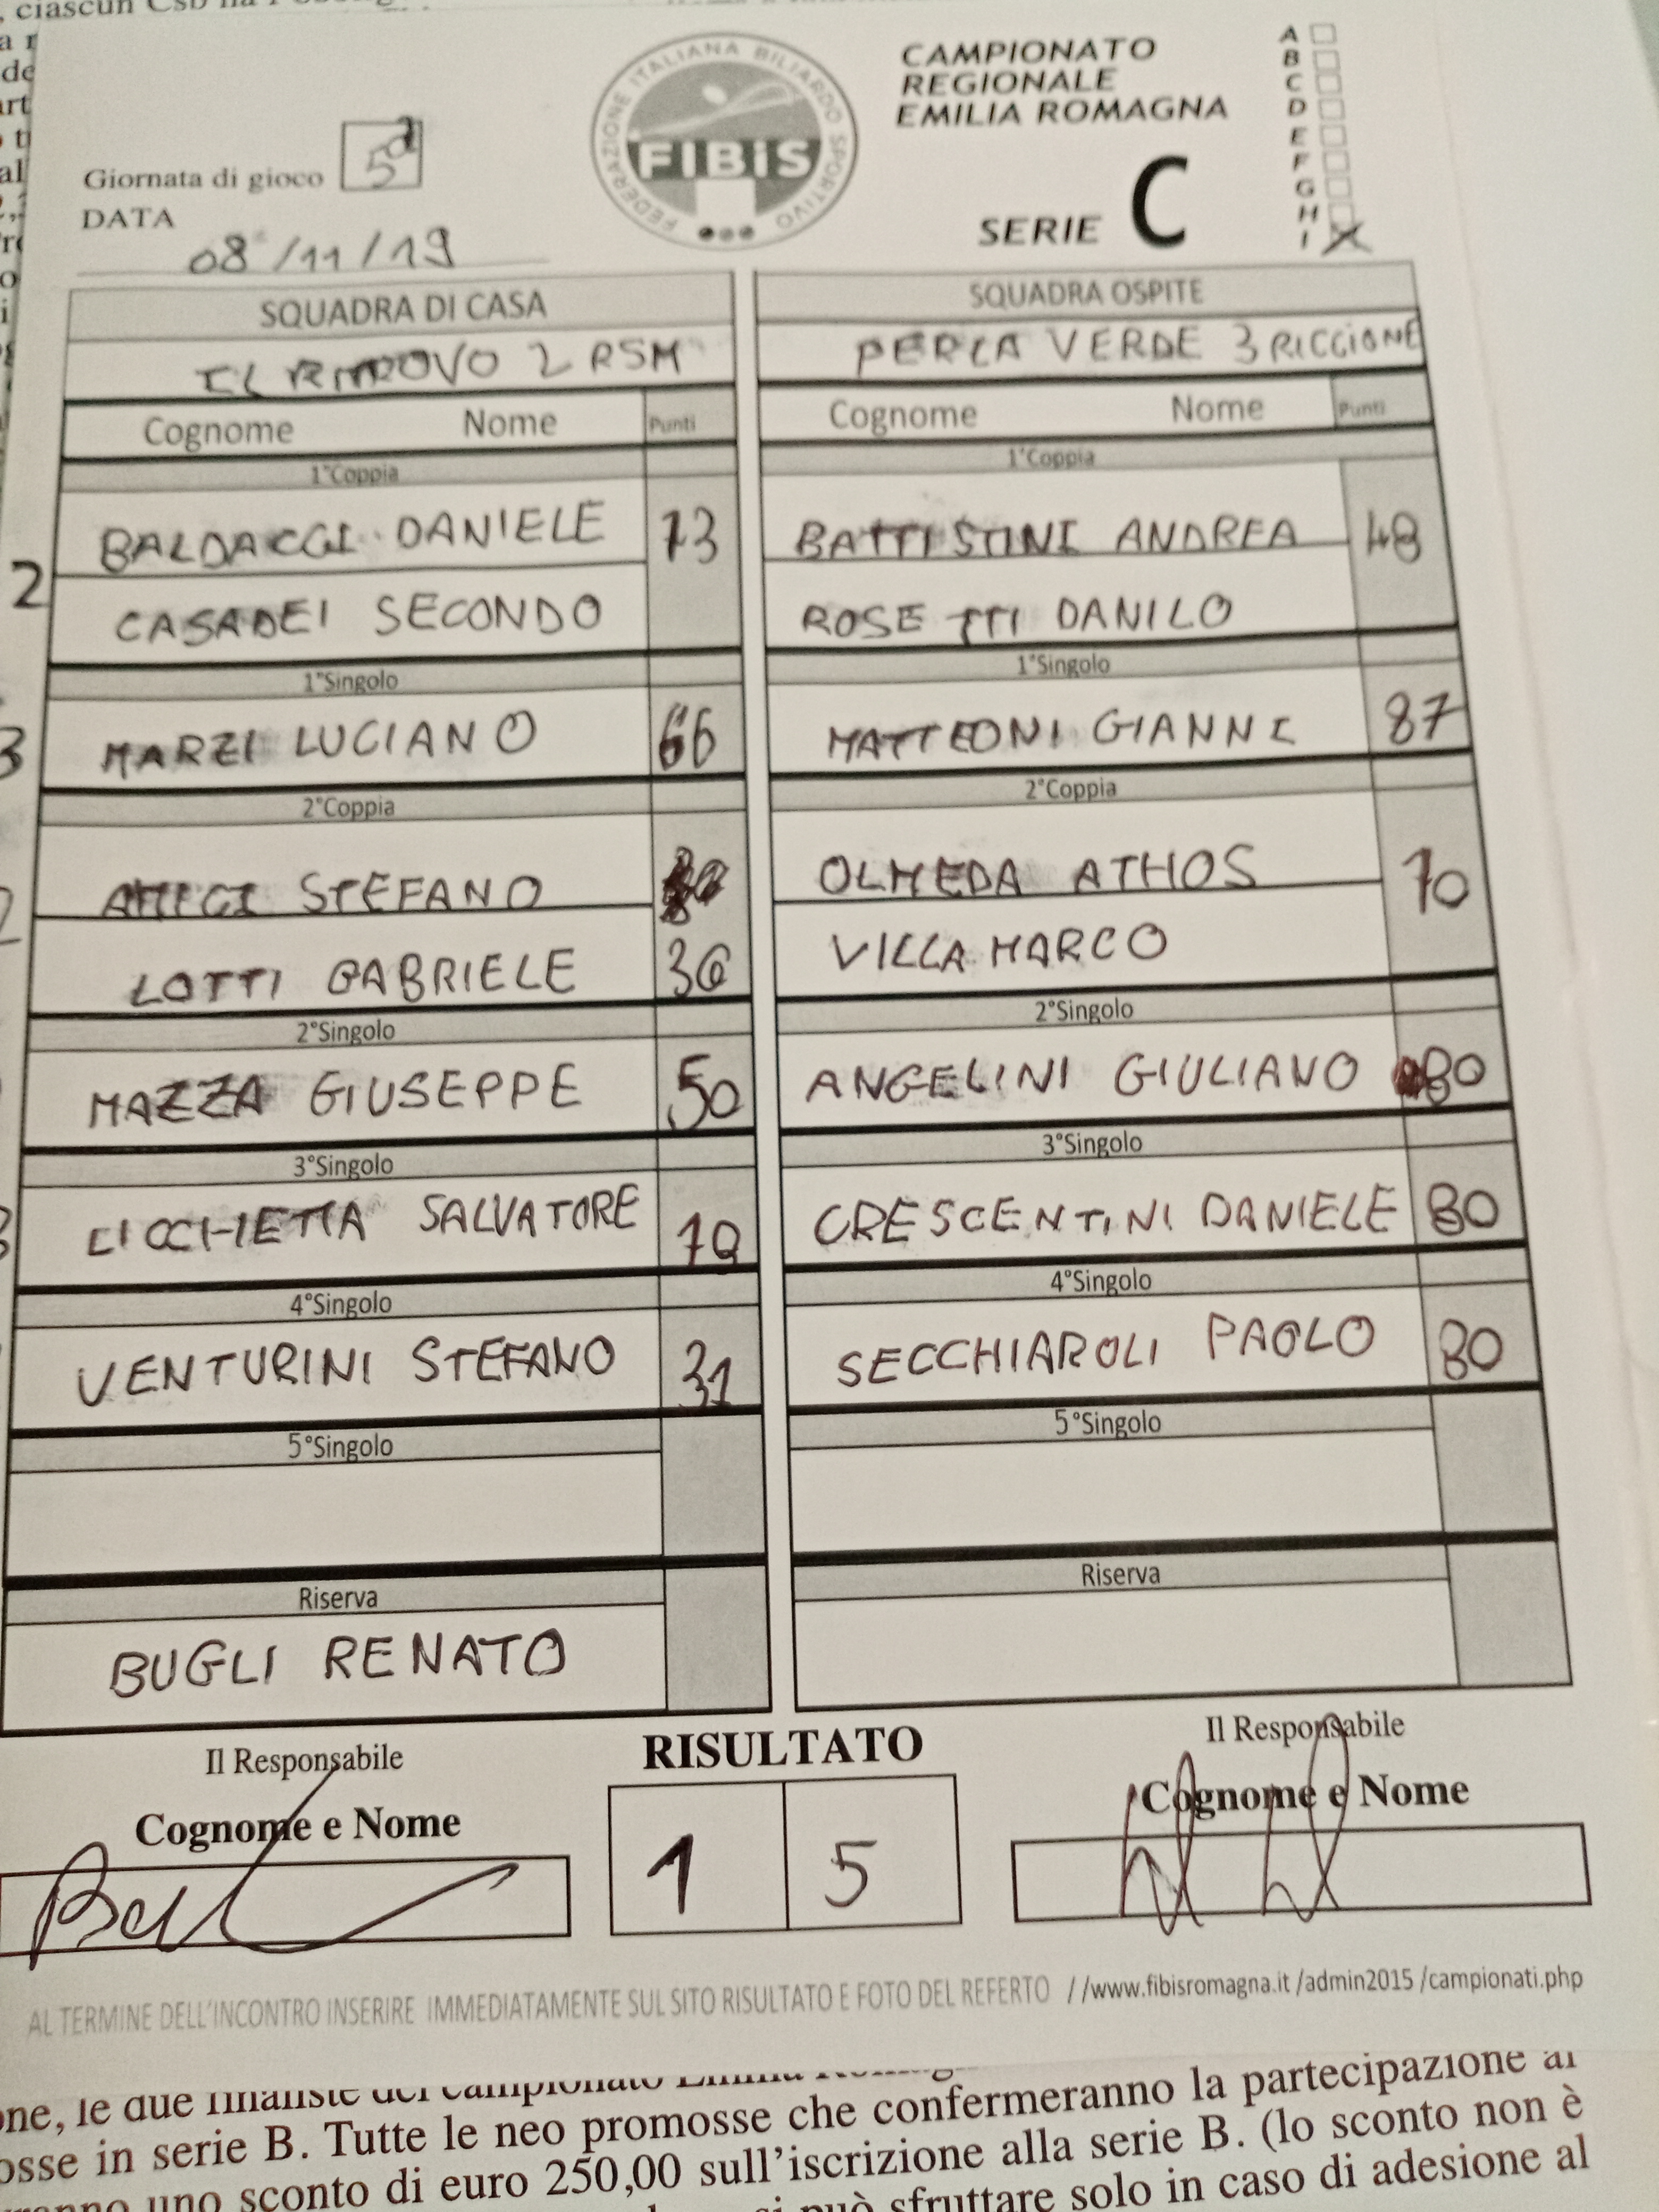 , ciascun Csb ha
Giornata di gioco 5ª
DATA
08/11/19
FEDERAZIONE ITALIANA BILIARDO SPORTIVO
FIBiS
CAMPIONATO
REGIONALE
EMILIA ROMAGNA
SERIE C
A
B
C
D
E
F
G
H
I X
SQUADRA DI CASA
SQUADRA OSPITE
IL RITROVO 2 RSM
PERLA VERDE 3 RICCIONE
Cognome Nome Punti
Cognome Nome Punti
1°Coppia
1°Coppia
BALDACCI DANIELE 73
BATTISTINI ANDREA 48
2
CASADEI SECONDO
ROSETTI DANILO
1°Singolo
1°Singolo
3
MARZI LUCIANO 66
MATTEONI GIANNI 87
2°Coppia
2°Coppia
AMICI STEFANO
OLMEDA ATHOS 70
LOTTI GABRIELE 36
VILLA MARCO
2°Singolo
2°Singolo
MAZZA GIUSEPPE 50
ANGELINI GIULIANO 80
3°Singolo
3°Singolo
CICCHETTA SALVATORE
CRESCENTINI DANIELE 80
4°Singolo
4°Singolo
VENTURINI STEFANO 31
SECCHIAROLI PAOLO 80
5°Singolo
5°Singolo
Riserva
Riserva
BUGLI RENATO
Il Responsabile
RISULTATO
Il Responsabile
Cognome e Nome
Cognome e Nome
1 5
AL TERMINE DELL'INCONTRO INSERIRE IMMEDIATAMENTE SUL SITO RISULTATO E FOTO DEL REFERTO //www.fibisromagna.it /admin2015 /campionati.php
one, le due finaliste del campionato Emilia
osse in serie B. Tutte le neo promosse che confermeranno la partecipazione al
uno sconto di euro 250,00 sull'iscrizione alla serie B. (lo sconto non è
si può sfruttare solo in caso di adesione al